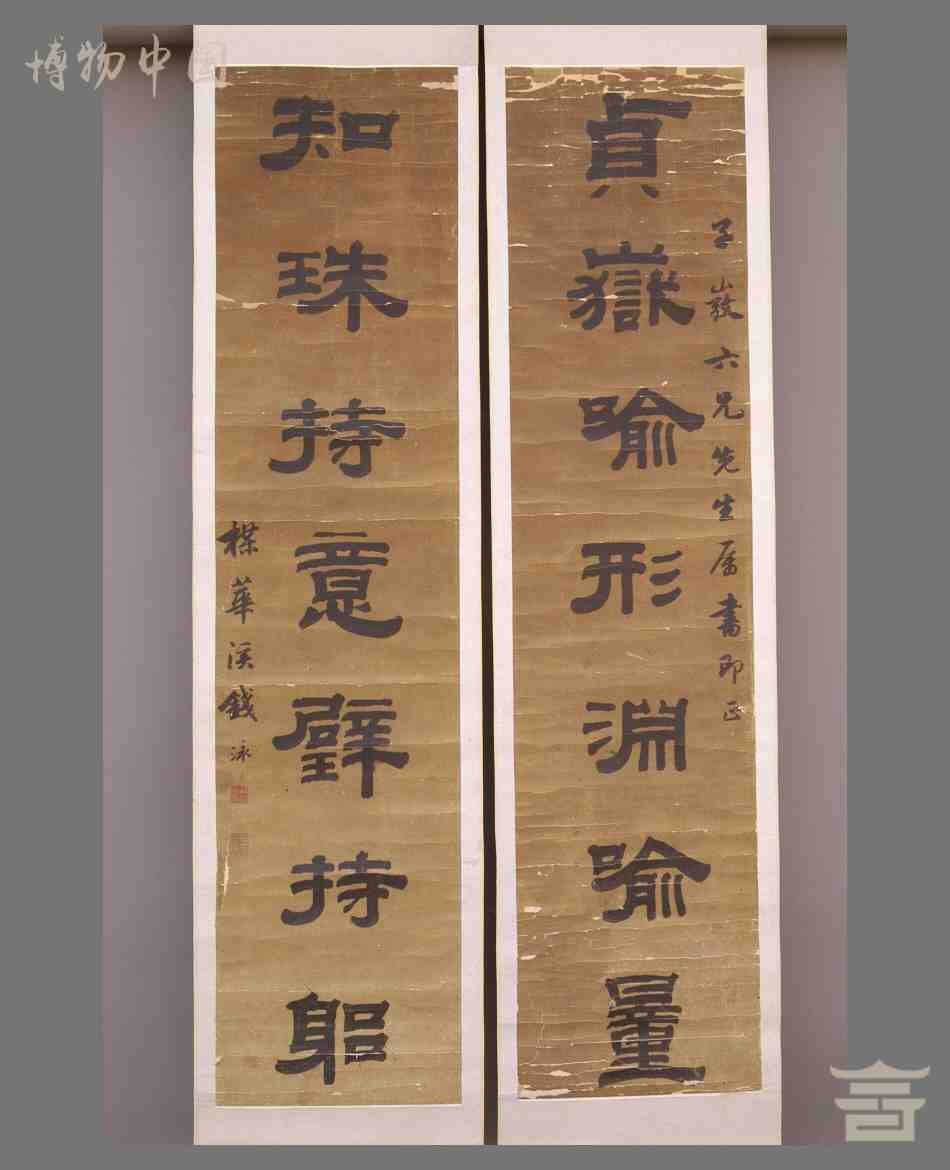 博物中国
貞嶽喻形淵喻量
子六兄先生属書即正
知珠持意璧持躳
楳華溪錢泳